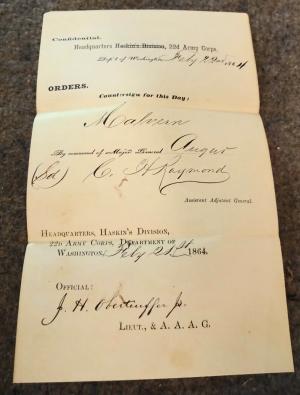 Confidential.
Headquarters Haskin's Division, 22d Army Corps,
Dep't of Washington, Feby 1864
ORDERS.
Countersign for this Day:
Malvern
By command of Major General Augur
(Sd) C. H. Raymond
Assistant Adjutant General.
HEADQUARTERS, HASKIN'S DIVISION,
22D ARMY CORPS, DEPARTMENT OF
WASHINGTON, Feby 1864.
OFFICIAL:
J. H. Oberteuffer jr.
LIEUT., & A. A. A. G.